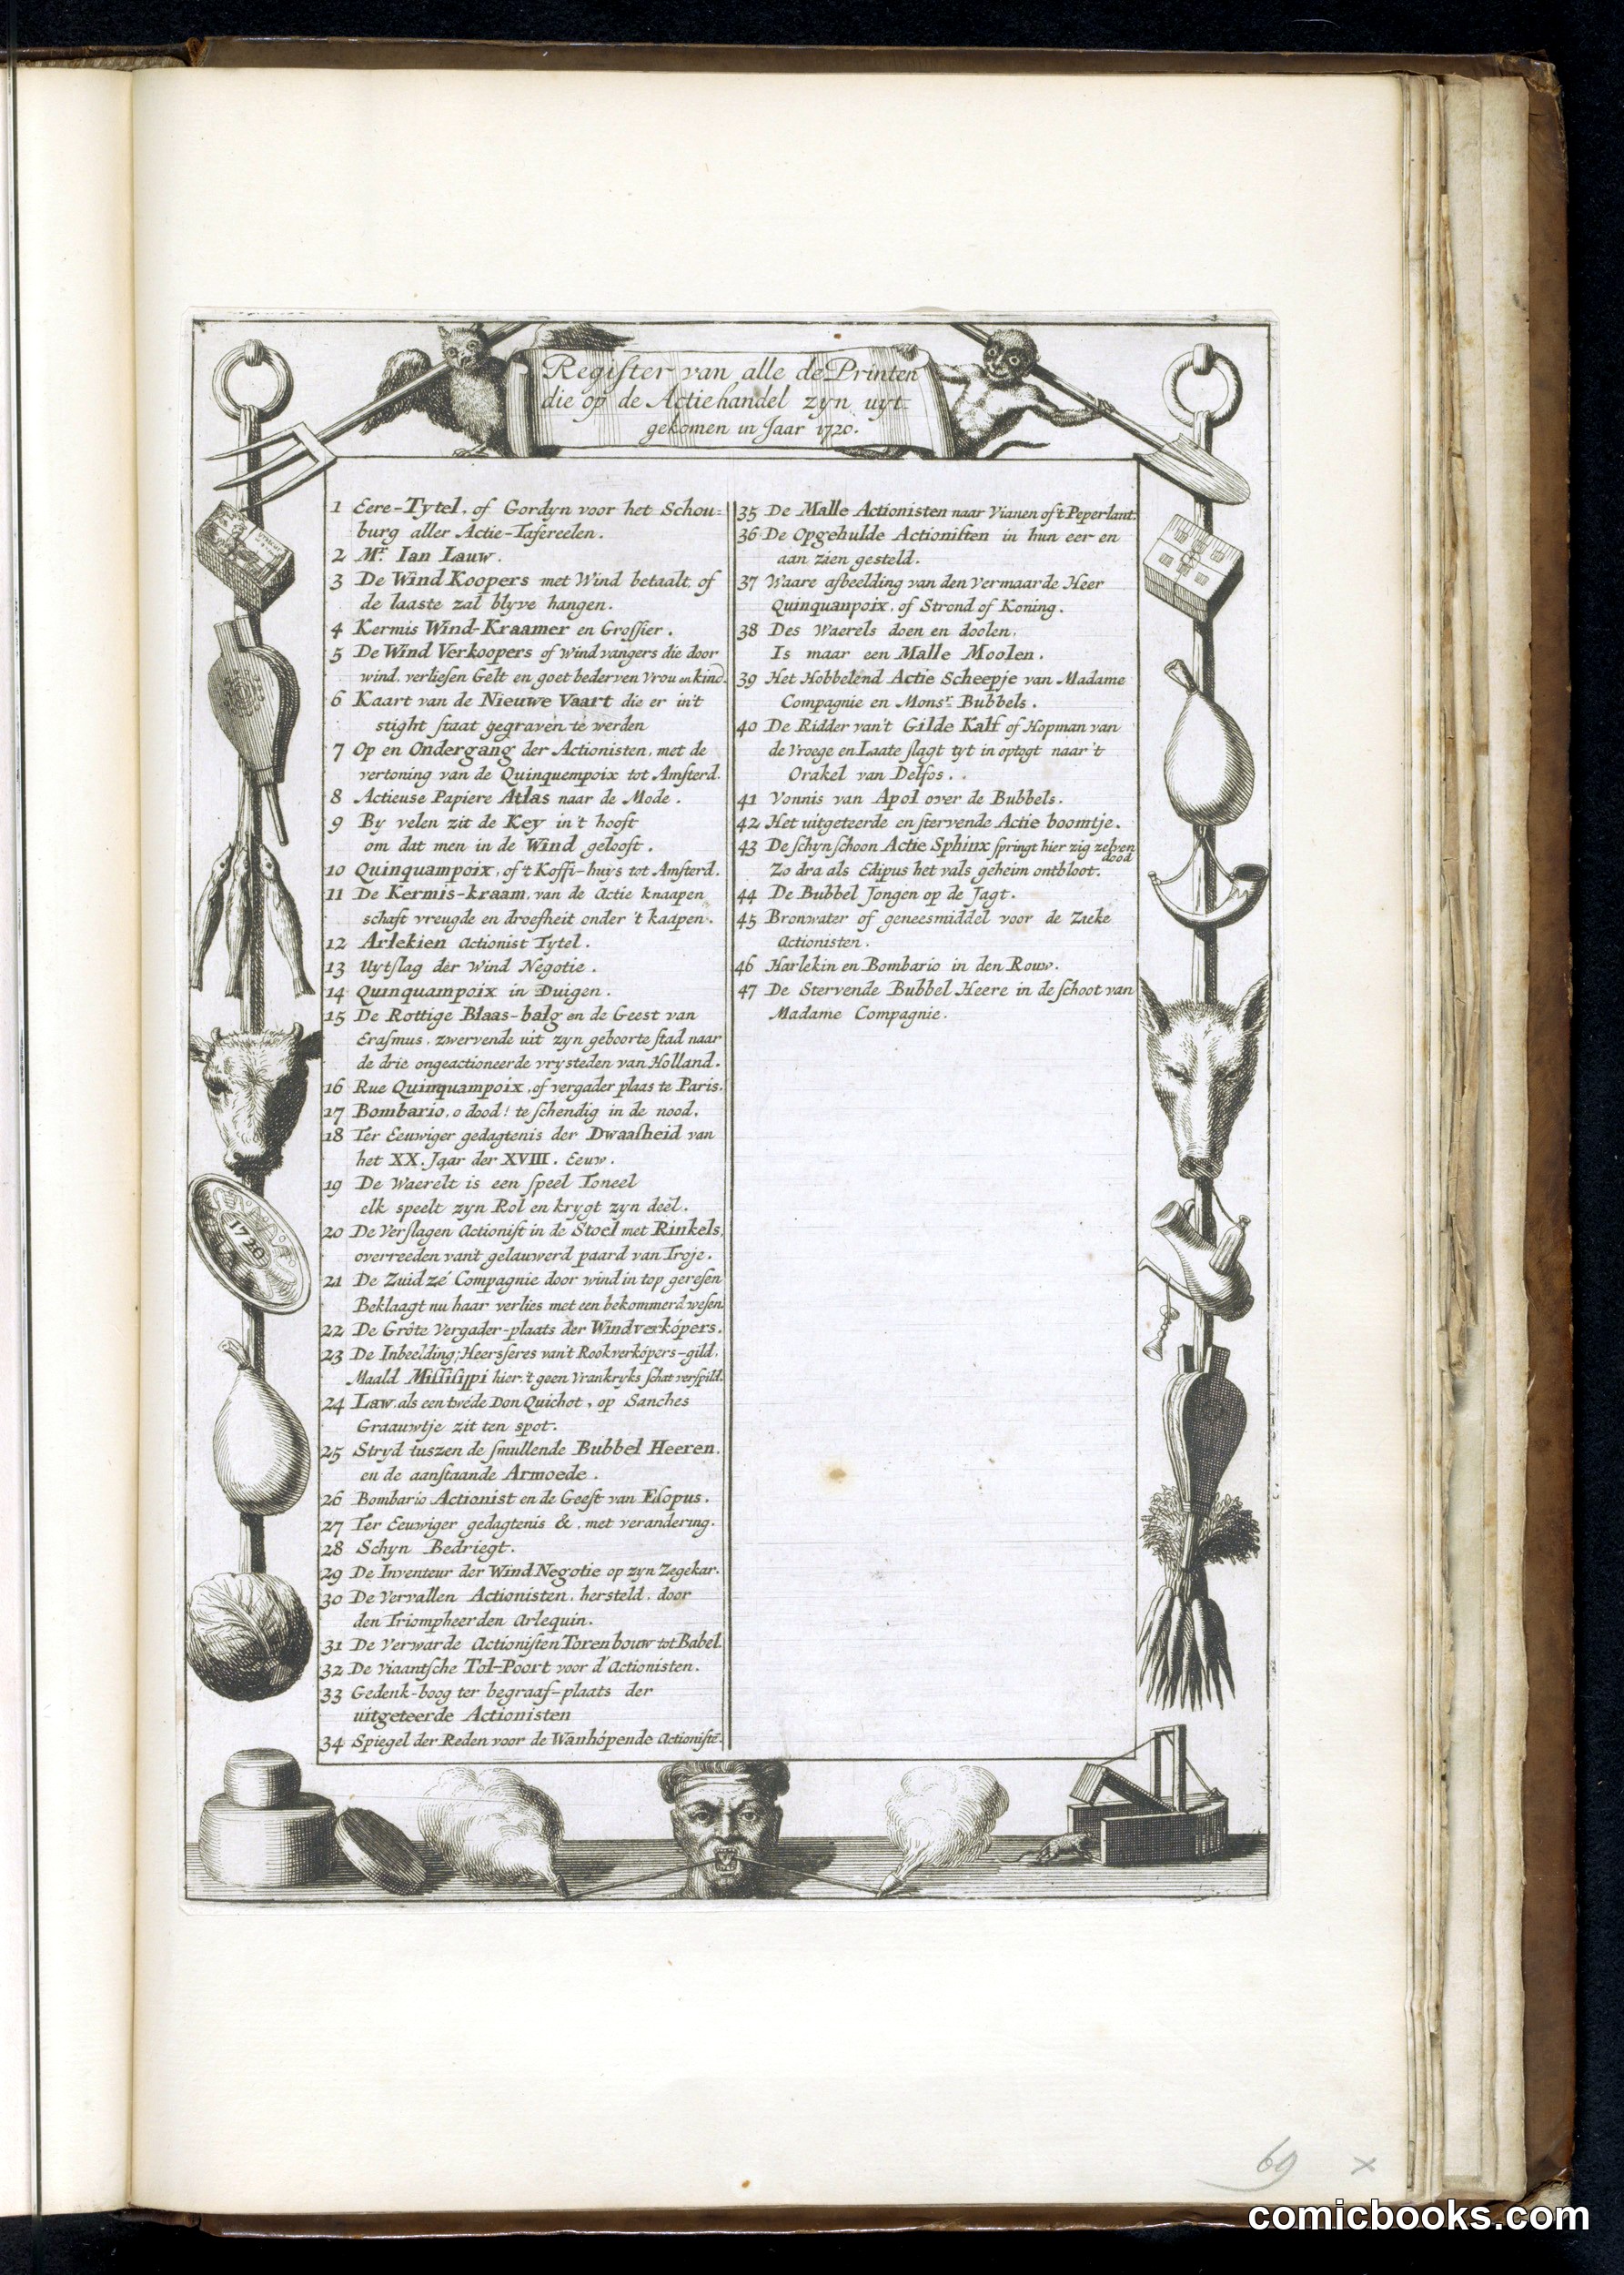 Register van alle de Printen
die op de Actiehandel zyn uyt
gekomen in Jaar 1720.
1 Eere-Tytel, of Gordyn voor het Schou=
burg aller Actie-Tafereelen.
2 Mr. Ian Lauw.
3 De Wind Koopers met Wind betaalt, of
de laaste zal blyve hangen.
4 Kermis Wind-Kraamer en Grossier.
5 De Wind Verkoopers of Windvangers die door
wind, verliesen Gelt en goet bederven Vrou en kind.
6 Kaart van de Nieuwe Vaart die er in't
stight staat gegraven te werden
7 Op en Ondergang der Actionisten, met de
vertoning van de Quinquempoix tot Amsterd.
8 Actieuse Papiere Atlas naar de Mode.
9 By velen zit de Key in't hooft
om dat men in de Wind gelooft.
10 Quinquampoix, of 't Koffi-huys tot Amsterd.
11 De Kermis-kraam, van de Actie knaapen
schaft vreugde en droefheit onder 't kaapen.
12 Arlekien Actionist Tytel.
13 Uytslag der Wind Negotie.
14 Quinquampoix in Duigen.
15 De Rottige Blaas-balg en de Geest van
Erasmus, zwervende uit zyn geboorte stad naar
de drie ongeactioneerde vrysteden van Holland.
16 Rue Quinquampoix, of vergader plaas te Paris.
17 Bombario, o dood! te schendig in de nood.
18 Ter Eeuwiger gedagtenis der Dwaasheid van
het XX. Jaar der XVIII. Eeuw.
19 De Waerelt is een speel Toneel
elk speelt zyn Rol en krygt zyn deel.
20 De Verslagen Actionist in de Stoel met Rinkels,
overreeden van't gelauwerd paard van Troje.
21 De Zuid zé Compagnie door wind in top geresen
Beklaagt nu haar verlies met een bekommerd wesen.
22 De Grôte Vergader-plaats der Windverkópers.
23 De Inbeelding; Heersseres van't Rookverkópers-gild,
Maald Missisippi hier, 't geen Vrankryks schat verspild.
24 Law, als een twéde Don Quichot, op Sanches
Graauwtje zit ten spot.
25 Stryd tuszen de smullende Bubbel Heeren,
en de aanstaande Armoede.
26 Bombario Actionist en de Geest van Esopus.
27 Ter Eeuwiger gedagtenis &, met verandering.
28 Schyn Bedriegt.
29 De Inventeur der Wind Negotie op zyn Zegekar.
30 De Vervallen Actionisten, hersteld, door
den Triompheerden Arlequin.
31 De Verwarde Actionisten Torenbouw tot Babel.
32 De Viaantsche Tol-Poort voor d'Actionisten.
33 Gedenk-boog ter begraaf-plaats der
uitgeteerde Actionisten
34 Spiegel der Reden voor de Wanhópende Actionistē.
35 De Malle Actionisten naar Vianen of't Peperlant.
36 De Opgehulde Actionisten in hun eer en
aan zien gesteld.
37 Waare afbeelding van den Vermaarde Heer
Quinquanpoix, of Strond of Koning.
38 Des Waerels doen en doolen,
Is maar een Malle Moolen.
39 Het Hobbelend Actie Scheepje van Madame
Compagnie en Monsr. Bubbels.
40 De Ridder van't Gilde Kalf of Hopman van
de Vroege en Laate slagt tyt in optogt naar 't
Orakel van Delfos.
41 Vonnis van Apol over de Bubbels.
42 Het uitgeteerde en stervende Actie boomtje.
43 De schynschoon Actie Sphinx springt hier zig zelven dood
Zo dra als Edipus het vals geheim ontbloot.
44 De Bubbel Jongen op de Jagt.
45 Bronwater of geneesmiddel voor de Zieke
Actionisten.
46 Harlekin en Bombario in den Rouw.
47 De Stervende Bubbel Heere in de schoot van
Madame Compagnie.
1720
69 x
comicbooks.com